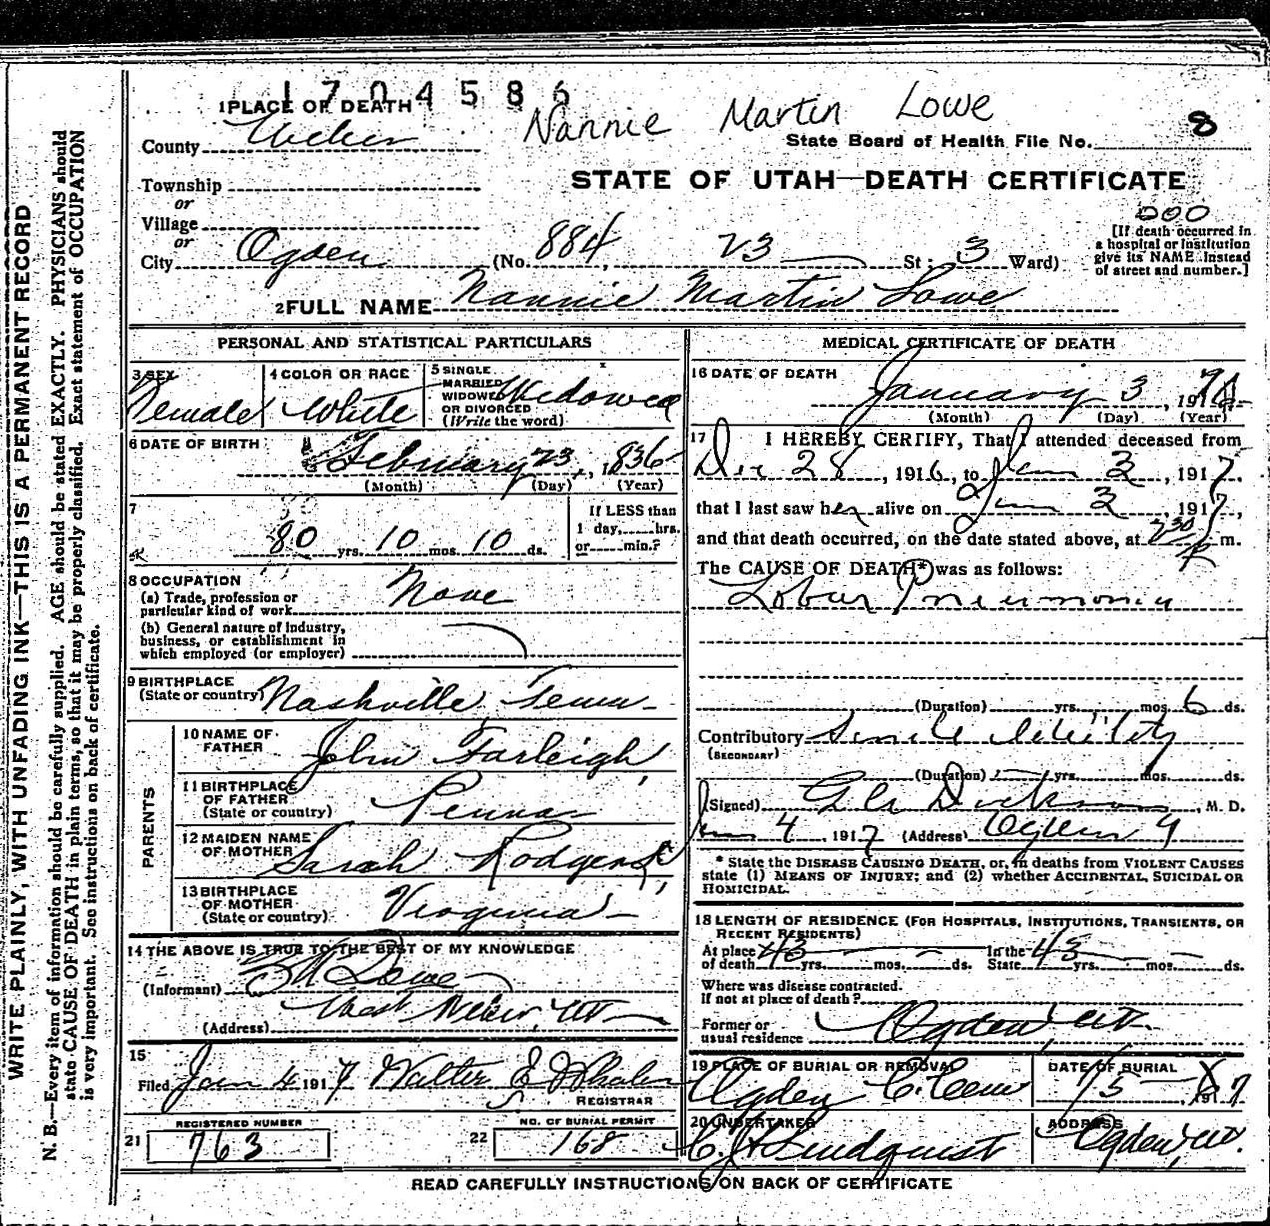 1704586
1 PLACE OF DEATH
Nannie Martin Lowe
County Weber
State Board of Health File No. 8
Township
or
STATE OF UTAH—DEATH CERTIFICATE
Village
or
City Ogden (No. 884, 23 St; 3 Ward)
[If death occurred in
a hospital or institution
give its NAME instead
of street and number.]
2 FULL NAME Nannie Martin Lowe
PERSONAL AND STATISTICAL PARTICULARS
3 SEX
Female
4 COLOR OR RACE
White
5 SINGLE
MARRIED
WIDOWED
OR DIVORCED
(Write the word)
Widowed
6 DATE OF BIRTH
February 23, 1836
(Month) (Day) (Year)
7
80 yrs. 10 mos. 10 ds.
If LESS than
1 day,......hrs.
or......min.?
8 OCCUPATION
(a) Trade, profession or
particular kind of work
None
(b) General nature of industry,
business, or establishment in
which employed (or employer)
9 BIRTHPLACE
(State or country) Nashville Tenn
PARENTS
10 NAME OF
FATHER
John Farleigh
11 BIRTHPLACE
OF FATHER
(State or country)
Penna
12 MAIDEN NAME
OF MOTHER
Sarah Rodgers
13 BIRTHPLACE
OF MOTHER
(State or country)
Virginia
14 THE ABOVE IS TRUE TO THE BEST OF MY KNOWLEDGE
(Informant) Lowe
(Address) West Weber, Ut
15
Filed Jan 4 1917 Walter E Whalen
REGISTRAR
21
REGISTERED NUMBER
763
22
NO. OF BURIAL PERMIT
168
MEDICAL CERTIFICATE OF DEATH
16 DATE OF DEATH
January 3, 191
(Month) (Day) (Year)
17 I HEREBY CERTIFY, That I attended deceased from
Dec 28, 1916, to Jan 3, 1917,
that I last saw her alive on Jan 3, 1917,
and that death occurred, on the date stated above, at 730 P m.
The CAUSE OF DEATH* was as follows:
Lobar Pneumonia
(Duration) yrs. mos. 6 ds.
Contributory Senile debility
(SECONDARY)
(Duration) yrs. mos. ds.
(Signed) Dickson, M. D.
Jan 4, 1917 (Address) Ogden
* State the DISEASE CAUSING DEATH, or, in deaths from VIOLENT CAUSES
state (1) MEANS OF INJURY; and (2) whether ACCIDENTAL, SUICIDAL OR
HOMICIDAL.
18 LENGTH OF RESIDENCE (FOR HOSPITALS, INSTITUTIONS, TRANSIENTS, OR
RECENT RESIDENTS)
At place
of death 43 yrs. mos. ds.
In the
State 43 yrs. mos. ds.
Where was disease contracted.
If not at place of death?
Former or
usual residence Ogden, Ut
19 PLACE OF BURIAL OR REMOVAL
Ogden C. Cem
DATE OF BURIAL
1/5 1917
20 UNDERTAKER
C. J. A. Lindquist
ADDRESS
Ogden, Ut.
READ CAREFULLY INSTRUCTIONS ON BACK OF CERTIFICATE
WRITE PLAINLY, WITH UNFADING INK—THIS IS A PERMANENT RECORD
N. B.—Every item of information should be carefully supplied. AGE should be stated EXACTLY. PHYSICIANS should
state CAUSE OF DEATH in plain terms, so that it may be properly classified. Exact statement of OCCUPATION
is very important. See instructions on back of certificate.